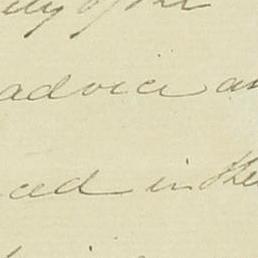 ity of the
advice an
ced in the